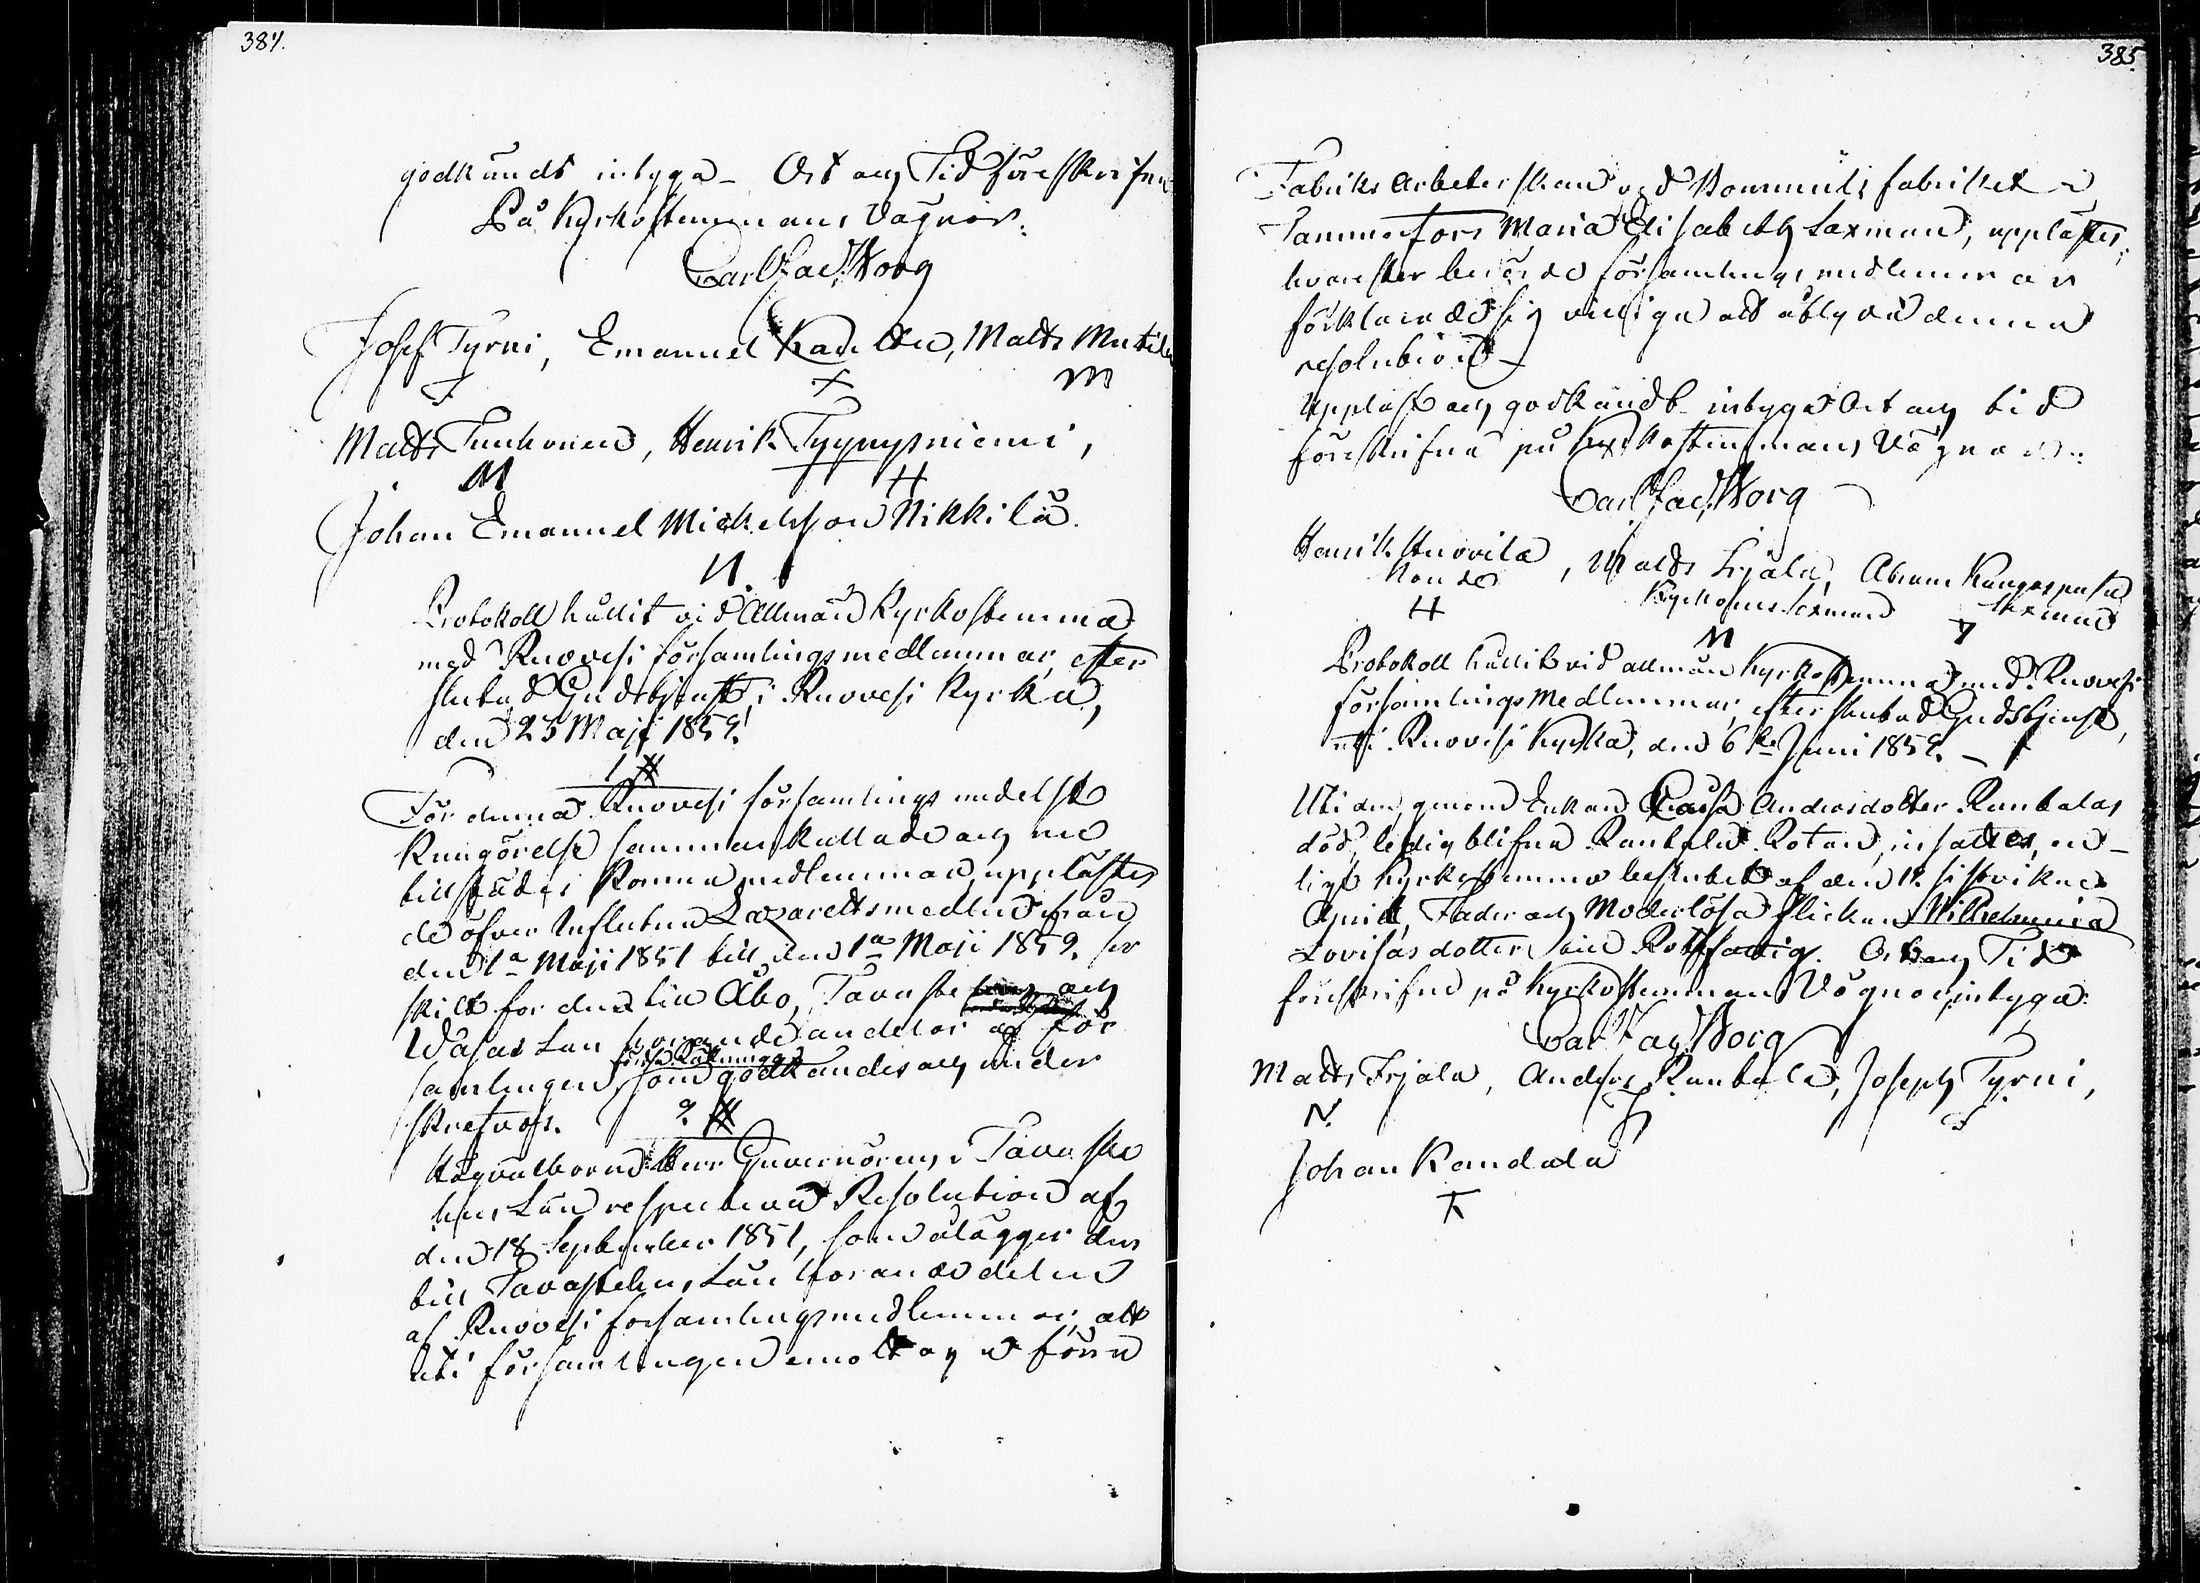 384.
godkändt intyga Ort och Tid föreskrifne
På Kyrkostemmans Vägnar:
Carl Zac. Borg
Josef Tyrni, Emanuel Matts
M
Matts Tuuhonen, Henrik Tyypysniemi,
M H
Johan Emanuel Mickelsson Nikkilä.
N.
Protokoll hållit vid Allmän Kyrkostemma
med Ruovesi församlingsmedlemmar, efter
slutad Gudstjenst, i Ruovesi Kyrka,
den 23 Maji 1852.
1 §
För denna Ruovesi församlings medelst
Kungörelse sammankallade och nu
tillstädes komna medlemmar, upplästes
de öfver influtna Lazarettsmedlen från
den 1a Maji 1851 till den 1a Maji 1852. sär
skilt for den till Åbo, Tavaste och
Wasa Län hörande andelar af för
första Räkningar
samlingen, som godkändes och under
skrefvos.
2 §
Högvälborne Herr Guvernörens i Tavaste
hus Län respective Resolution af
den 18 September 1851, som ålägger den
till Tavastehus Län hörande delen
af Ruovesi församlingsmedlemmar, att
uti församlingen emottaga förra
385.
Fabriks Arbeterskan vid Bommuls fabriket i
Tammerfors Maria Elisabeth Laxman, upplästes,
hvarefter berörde församlings medlemmar
förklarade sig villiga att åtlyda denna
resolution
Uppläst och godkändt intyga Ort och tid
föreskrifna på Kyrkostemmans Vägnar:
Carl Zac. Borg
Henrik Ruovila, Matts Erjala, Abram
Nämde Kyrkones. Sexman Sexman
H
M
Protokoll hållit vid allmän Kyrkostemma med Ruovesi
församlings Medlemmar, efter slutad Gudstjenst,
uti Ruovesi Kyrka, den 6te Juni 1852.
Uti den, genom Enkan Caisa Andersdotter Rantalas
död, ledig blifna Rantala Rotan, insattes, en-
ligt Kyrkostemmo beslutet af den
April, Fader och Moderlösa flickan Wilhelmina
Lovisasdotter, som Rotfattig. Ort och Tid
föreskrifne på Kyrkostemmans Vägnar, intyga:
Carl Zac. Borg
Matts Erjala, Anders Rantala, Joseph Tyrni,
Johan Randala